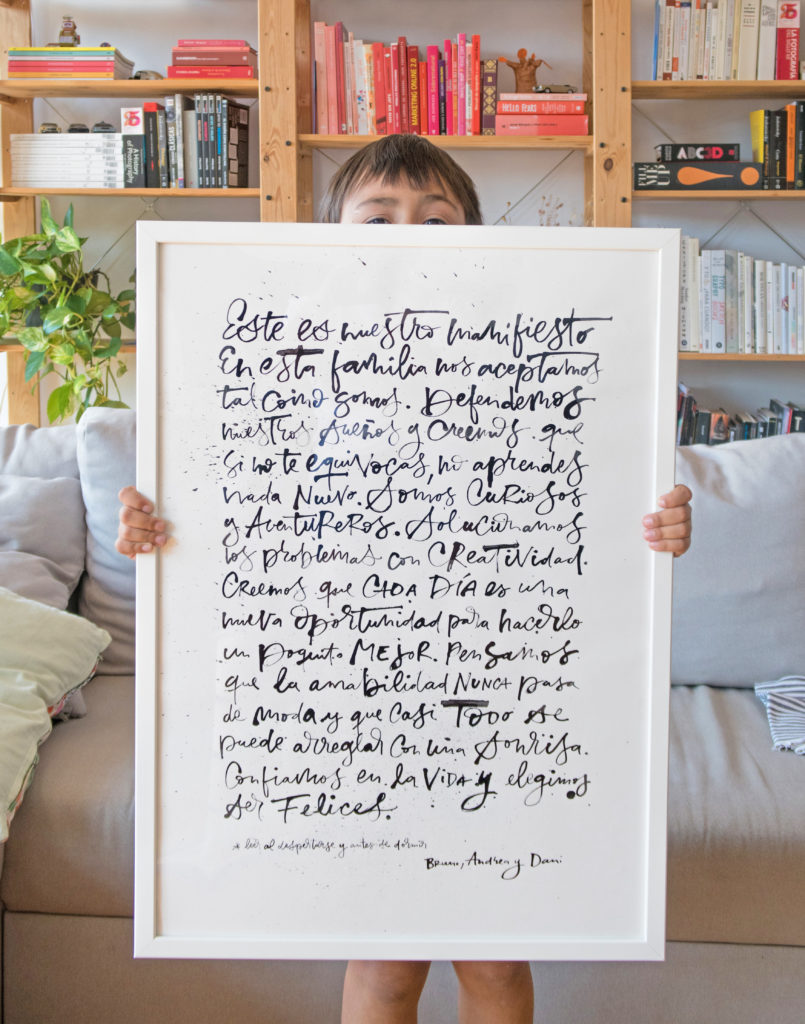 MARKETING ONLINE 2.0
HELLO FEARS
LA FOTOGRAFÍA
A History of Photography
ABC3D
Este es nuestro manifiesto
En esta familia nos aceptamos
tal como somos. Defendemos
nuestros sueños y creemos que
si no te equivocas, no aprendes
nada Nuevo. Somos CuRiosos
y AventuReRos. Solucionamos
los problemas con CReaTividad.
Creemos que CADA DÍA es una
nueva oportunidad para hacerlo
un poquito MEJOR. Pensamos
que la amabilidad NUNCA pasa
de moda y que casi TODO se
puede arreglar con una sonrisa.
Confiamos en la VIDA y elegimos
ser Felices.
a leer al despertarse y antes de dormir
Bruno, Andrea y Dani